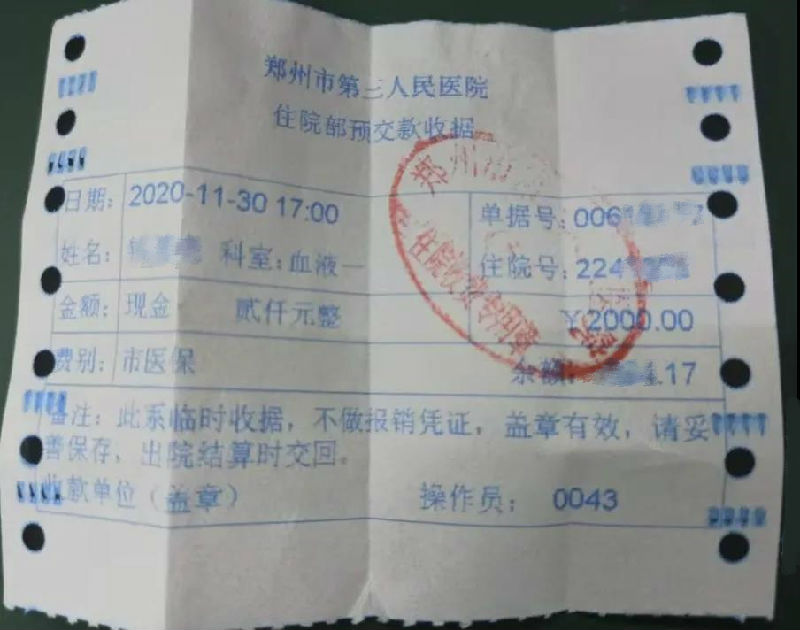 郑州市第三人民医院
住院部预交款收据
日期: 2020-11-30 17:00 单据号:006
姓名: 科室:血液一 住院号:224
金额: 现金 贰仟元整 ￥2000.00
费别: 市医保 余额: .17
备注: 此系临时收据，不做报销凭证，盖章有效，请妥
善保存，出院结算时交回。
收款单位（盖章） 操作员: 0043
郑州市
住院收费专用章